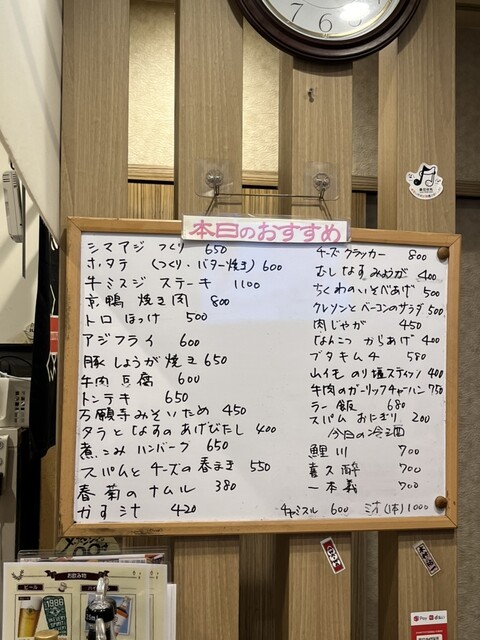 本日のおすすめ
シマアジ つくり 650
ホタテ (つくり・バター焼き) 600
牛ミスジ ステーキ 1100
京鴨 焼き肉 800
トロ ほっけ 500
アジフライ 600
豚しょうが焼き 650
牛肉豆腐 600
トンテキ 650
万願寺みそいため 450
タラとなすのあげびたし 400
煮こみハンバーグ 650
スパムとチーズの春まき 550
春菊のナムル 380
かす汁 420
チーズクラッカー 800
むしなすみょうが 400
ちくわのいそべあげ 500
クレソンとベーコンのサラダ 500
肉じゃが 450
なんこつからあげ 400
ブタキムチ 580
山イモのり塩スティック 400
牛肉のガーリックチャーハン 750
ラー飯 680
スパムおにぎり 200
今日の冷酒
鯉川 700
喜久酔 700
一本義 700
チャミスル 600 ミオ(1本) 1000
お飲み物
ビール
1986